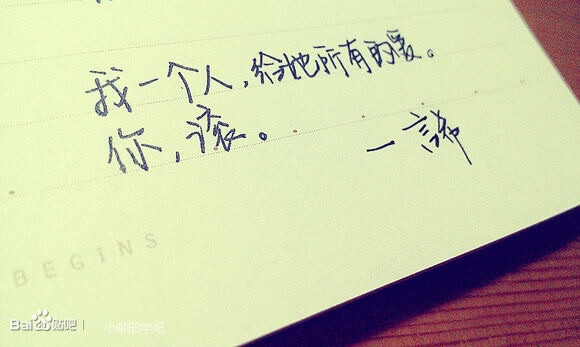 我一个人，给她所有的爱。
你，滚。
一諦
BEGINS
Bai贴吧 | 小啦的字吧